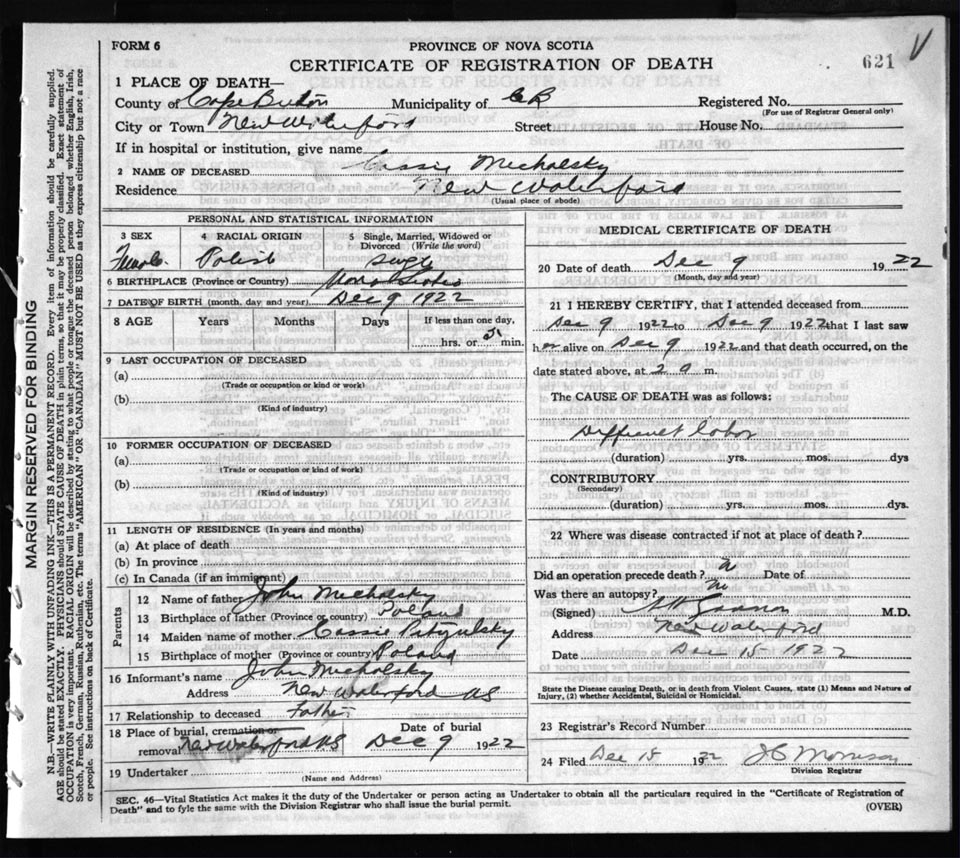 FORM 6
PROVINCE OF NOVA SCOTIA
CERTIFICATE OF REGISTRATION OF DEATH
621
1 PLACE OF DEATH—
County of Cape Breton Municipality of C B Registered No.
(For use of Registrar General only)
City or Town New Waterford Street House No.
If in hospital or institution, give name
2 NAME OF DECEASED Cassie Micholsky
Residence New Waterford
(Usual place of abode)
PERSONAL AND STATISTICAL INFORMATION
3 SEX 4 RACIAL ORIGIN 5 Single, Married, Widowed or Divorced (Write the word)
Female Polish Single
6 BIRTHPLACE (Province or Country) Nova Scotia
7 DATE OF BIRTH (month, day and year) Dec 9 1922
8 AGE Years Months Days If less than one day,
hrs. or 5 min.
9 LAST OCCUPATION OF DECEASED
(a)
(Trade or occupation or kind or work)
(b)
(Kind of industry)
10 FORMER OCCUPATION OF DECEASED
(a)
(Trade or occupation or kind of work)
(b)
(Kind of industry)
11 LENGTH OF RESIDENCE (In years and months)
(a) At place of death
(b) In province
(c) In Canada (if an immigrant)
Parents
12 Name of father John Micholsky
13 Birthplace of father (Province or country) Poland
14 Maiden name of mother Cassie
15 Birthplace of mother (Province or country) Poland
16 Informant's name John Micholsky
Address New Waterford NS
17 Relationship to deceased Father
18 Place of burial, cremation or removal New Waterford NS Date of burial Dec 9 1922
19 Undertaker
(Name and Address)
MEDICAL CERTIFICATE OF DEATH
20 Date of death Dec 9 1922
(Month, day and year)
21 I HEREBY CERTIFY, that I attended deceased from
Dec 9 1922 to Dec 9 1922 that I last saw
her alive on Dec 9 1922 and that death occurred, on the
date stated above, at 2 a m.
The CAUSE OF DEATH was as follows:
Difficult labor
(duration) yrs. mos. dys
CONTRIBUTORY
(Secondary)
(duration) yrs. mos. dys.
22 Where was disease contracted if not at place of death?
Did an operation precede death? Date of
Was there an autopsy? no
(Signed) M.D.
Address New Waterford
Date Dec 15 1922
State the Disease causing Death, or in death from Violent Causes, state (1) Means and Nature of
Injury, (2) whether Accidental, Suicidal or Homicidal.
23 Registrar's Record Number
24 Filed Dec 15 1922 J C Morrison
Division Registrar
SEC. 46—Vital Statistics Act makes it the duty of the Undertaker or person acting as Undertaker to obtain all the particulars required in the "Certificate of Registration of
Death" and to fyle the same with the Division Registrar who shall issue the burial permit.
(OVER)
MARGIN RESERVED FOR BINDING
N.B.—WRITE PLAINLY WITH UNFADING INK—THIS IS A PERMANENT RECORD. Every item of information should be carefully supplied.
AGE should be stated EXACTLY. PHYSICIANS should STATE CAUSE OF DEATH in plain terms, so that it may be properly classified. Exact statement of
OCCUPATION is very important. RACIAL ORIGIN will be described by stating to what people or tongue the deceased person belonged whether English, Irish,
Scotch, French, German, Russian, Ruthenian, etc. The terms "AMERICAN" OR "CANADIAN" MUST NOT BE USED as they express citizenship but not a race
or people. See instructions on back of Certificate.